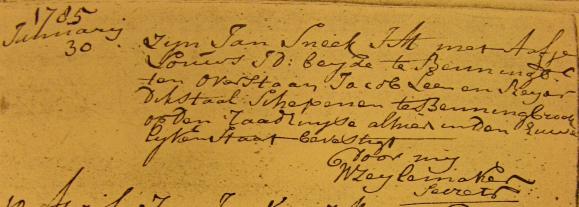 1785
January
30
zijn Jan Sneek JM met Aafje
Louws JD: beyde te Benningb:
ten overstaan Jacob Lee en Reyer
Dikstaal Schepenen te Benningbroek
op den Raadhuyse alhier in den
lyken Staat bevestigt
Door my
WZeylemaker
Secrets